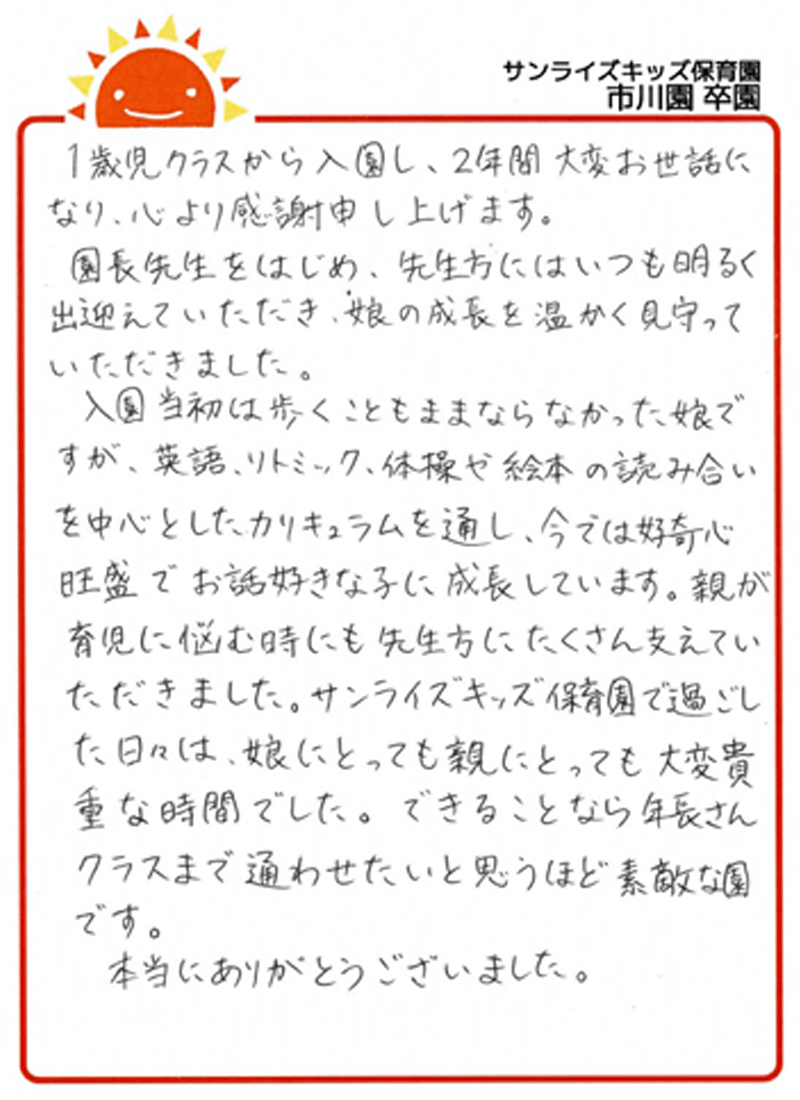 サンライズキッズ保育園
市川園 卒園
1歳児クラスから入園し、2年間大変お世話に
なり、心より感謝申し上げます。
園長先生をはじめ、先生方にはいつも明るく
出迎えていただき、娘の成長を温かく見守って
いただきました。
入園当初は歩くこともままならなかった娘で
すが、英語、リトミック、体操や絵本の読み合い
を中心としたカリキュラムを通し、今では好奇心
旺盛でお話好きな子に成長しています。親が
育児に悩む時にも先生方にたくさん支えてい
ただきました。サンライズキッズ保育園で過ごし
た日々は、娘にとっても親にとっても大変貴
重な時間でした。できることなら年長さん
クラスまで通わせたいと思うほど素敵な園
です。
本当にありがとうございました。